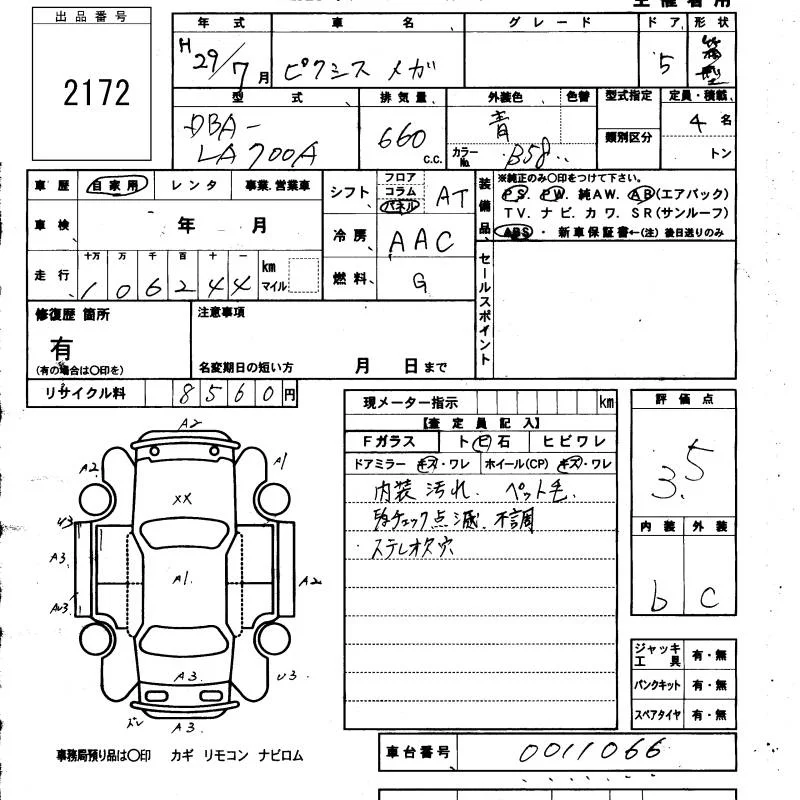 主催者用
出品番号
2172
年式 車名 グレード ドア 形状
H29/7月 ピクシス メガ 5 箱型
型式 排気量 外装色 色替 型式指定 定員・積載
類別区分
DBA-
LA700A
660 c.c.
青
カラーNo. B58
4名
トン
車歴 自家用 レンタ 事業.営業車
車検 年 月
走行 十万 万 千 百 十 一
106244 km マイル
シフト フロア コラム パネル AT
冷房 AAC
燃料 G
装備品
※純正のみ〇印をつけて下さい。
PS. PW. 純AW. AB(エアバック)
TV. ナビ. カワ. SR(サンルーフ)
ABS ・ 新車保証書←(注) 後日送りのみ
セールスポイント
修復歴 箇所
有
(有の場合は〇印を)
注意事項
名変期日の短い方 月 日まで
リサイクル料 8560円
現メーター指示 km
【査定員記入】
Fガラス トビ石 ヒビワレ
ドアミラー キズ・ワレ ホイール(CP) キズ・ワレ
内装 汚れ. ペット毛.
チェック点滅. 不調
ステレオ欠 穴
評価点
3.5
内装 外装
b C
A2
A2
A1
XX
U3
A3
A1.
A2
A3.
U3
ズレ
A3.
ジャッキ工具 有・無
パンクキット 有・無
スペアタイヤ 有・無
事務局預り品は〇印 カギ リモコン ナビロム
車台番号 0011066